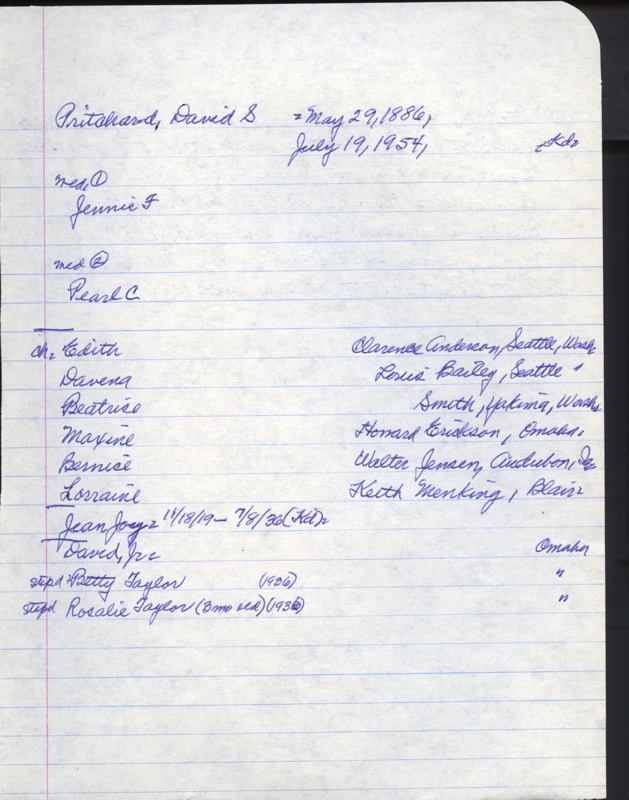 Pritchard, David S = May 29, 1886,
July 19, 1954, Kdz
med, ①
Jennie F
med ②
Pearl C
ch: Edith Clarence Anderson, Seattle, Wash
Davena Louis Bailey, Seattle "
Beatrice Smith, Yakima, Wash,
Maxine Howard Erickson, Omaha,
Bernice Walter Jensen, Audubon, Ia
Lorraine Keith Menking, Blair
Jean Joy = 11/18/19 - 7/8/36 (Kd)
David, Jr. Omaha
stepd: Betty Taylor (1936) "
stepd Rosalie Taylor (3 mo old) (1936) "